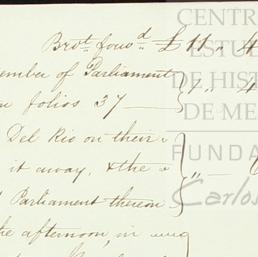 Bro.t forw.d £ 11 . 4
ember of Parliament
folios 37
Del Rio on their
it away, & the
Parliament thereon
he afternoon, in
CENTR
ESTU
DE HIST
DE ME
FUNDA
Carlos